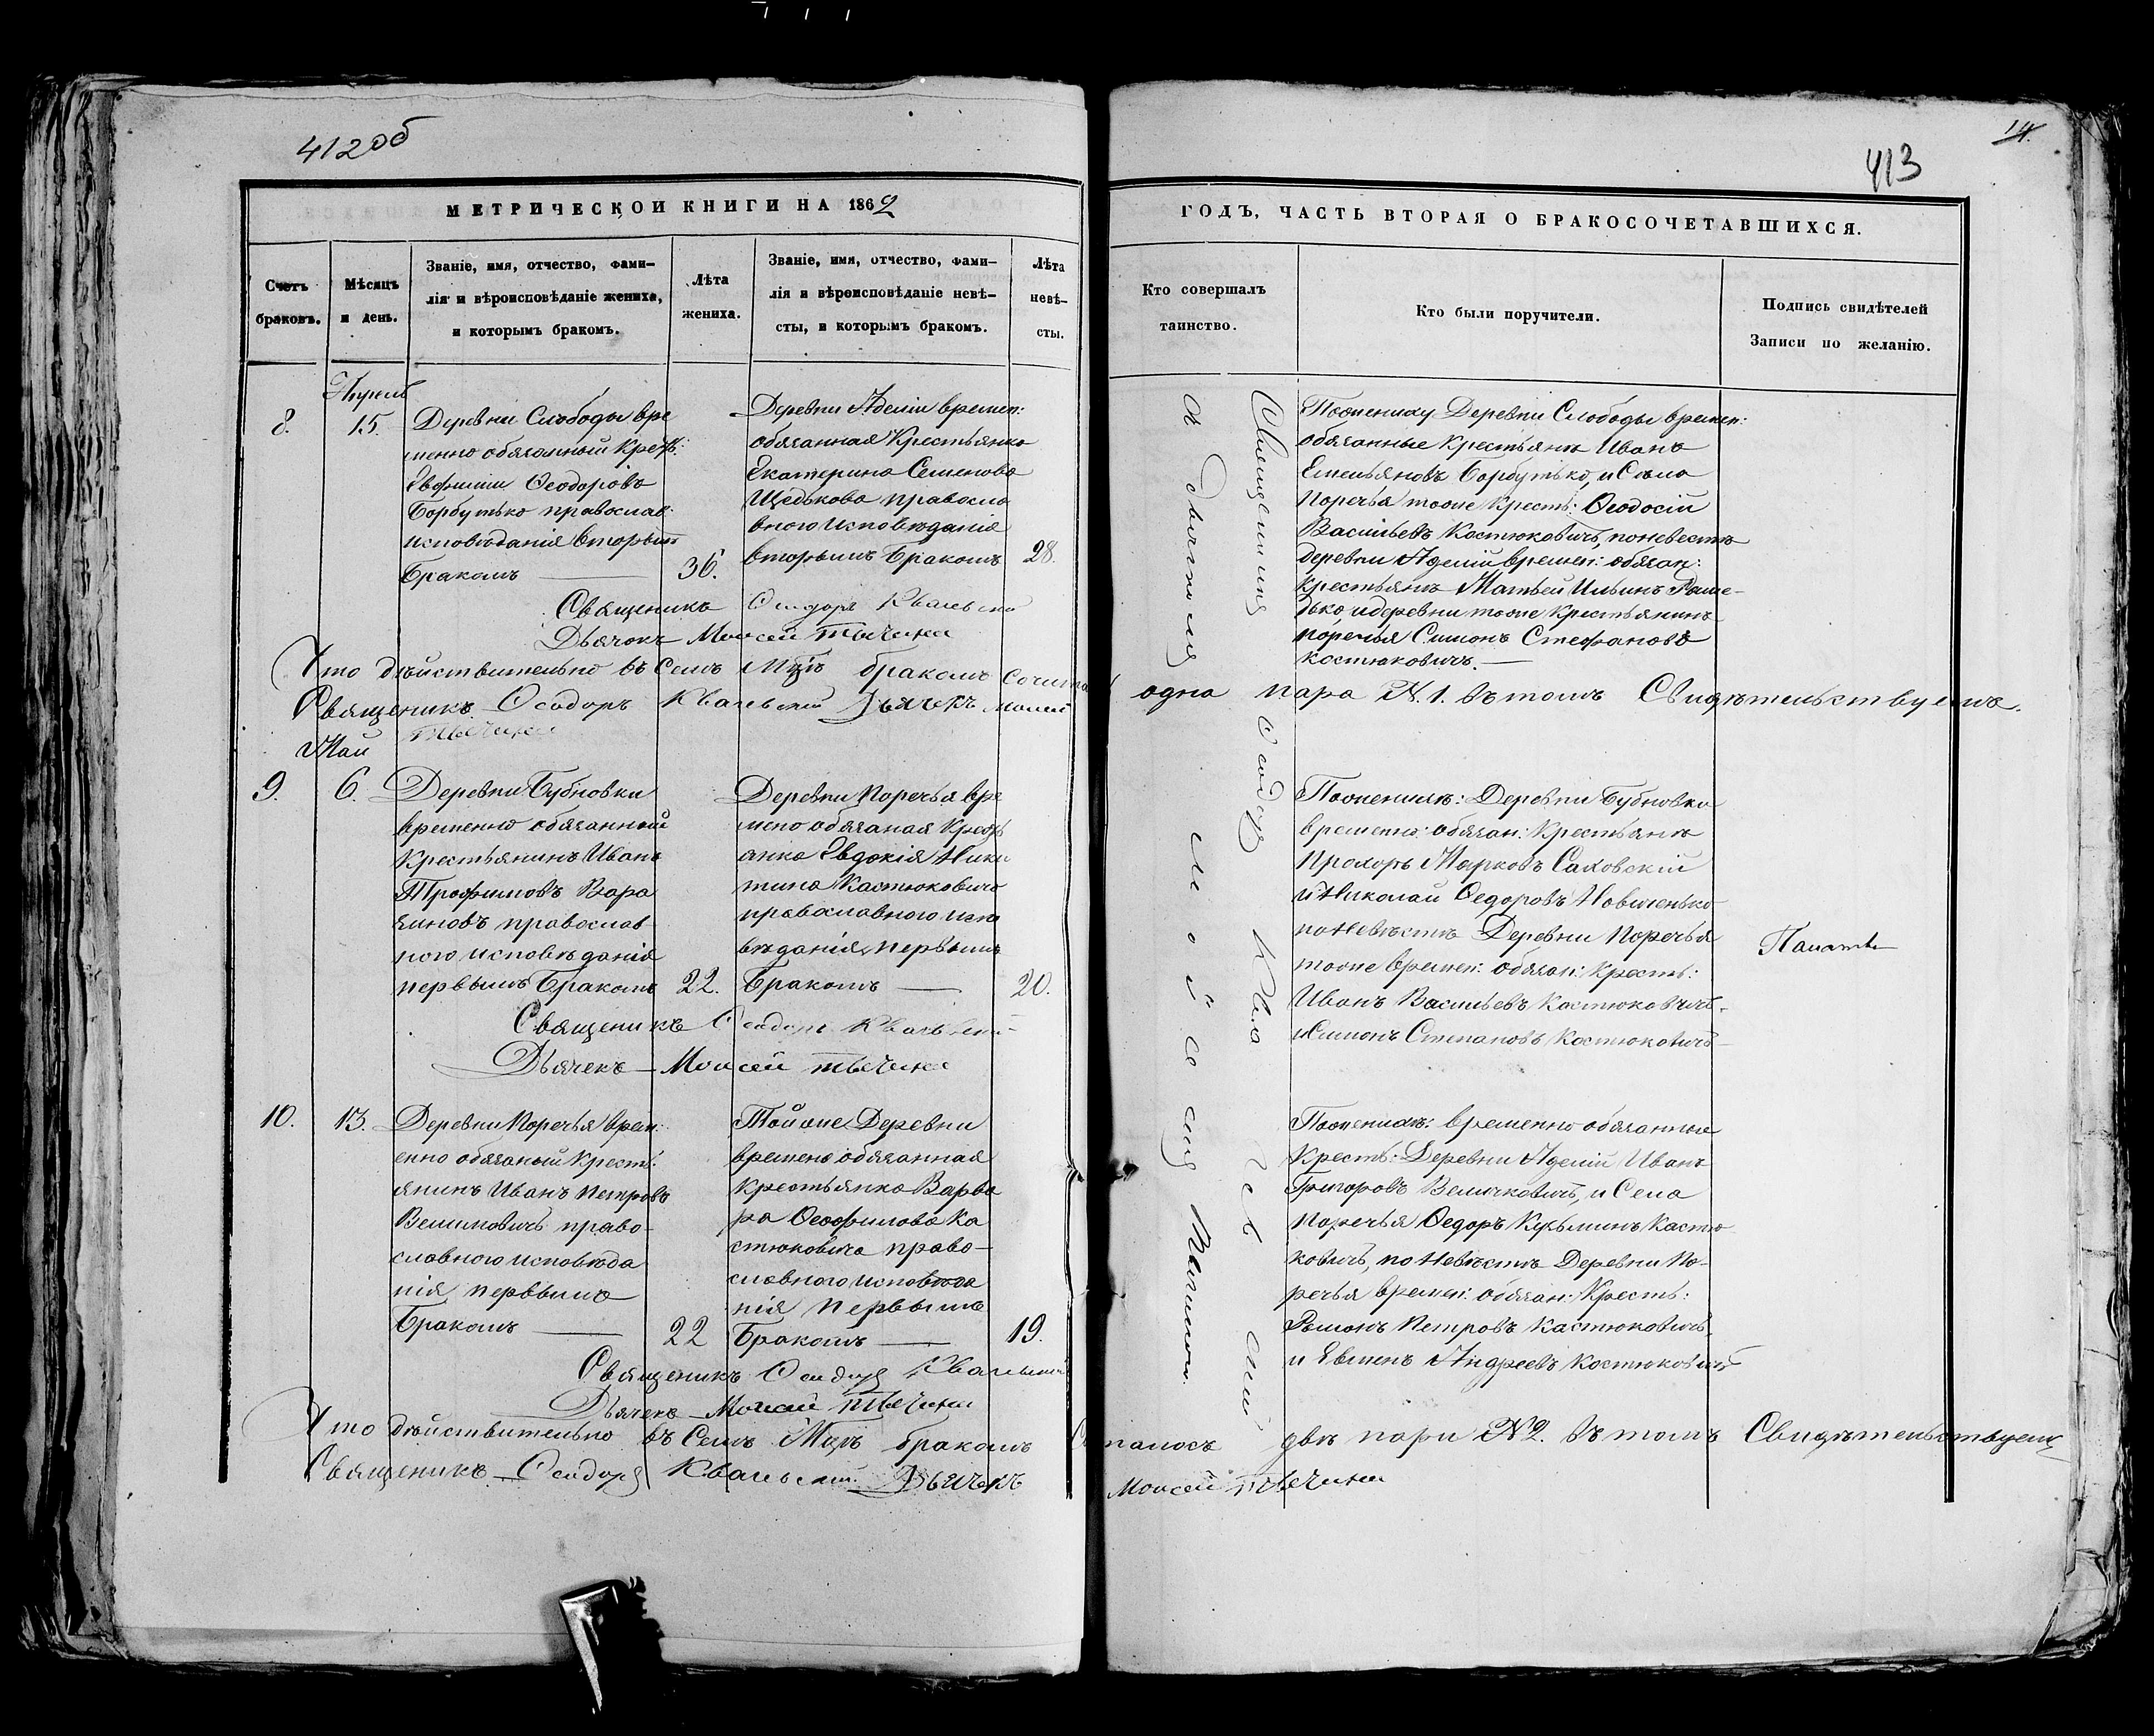 412об
МЕТРИЧЕСКОИ КНИГИ НА 1862
Счетъ браковъ.
Мѣсяцъ и день.
Званіе, имя, отчество, фами-
лія и вѣроисповѣданіе жениха,
и которымъ бракомъ.
Лѣта жениха.
Званіе, имя, отчество, фами-
лія и вѣроисповѣданіе невѣ-
сты, и которымъ бракомъ.
Лѣта невѣ-
сты.
8.
Апрель
15.
Деревни Слободы вре
менно обязанный Крест:
Евфимій Ѳеодоровъ
Борбутько православ:
исповѣданія вторымъ
Бракомъ
36.
Деревни Адели времен:
обязанная Крестьянка
Екатерина Семенова
Щедькова правосла
вного исповѣданія
вторымъ Бракомъ
28.
Священикъ Ѳеодоръ
Дьячокъ Моисей
Что дѣйствительно въ Семъ Мцѣ бракомъ
Священикъ Ѳеодоръ Дьячекъ Моисей
Май
9.
6.
Деревни Бубновки
временно обязанный
Крестьянинъ Иванъ
Трофимовъ Вара
виновъ православ
ного исповѣданія
первымъ Бракомъ
22.
Деревни Поречья вре
мено обязаная Кресть
анка Евдокія Ники
тина Кастюковича
православного испо
вѣданія первымъ
Бракомъ
20.
Священикъ Ѳеодоръ
Дьячекъ Моисей
10.
13.
Деревни Поречья врем:
енно обязаный Кресть:
янинъ Иванъ Петровъ
Величковичъ право-
славного исповѣда
нія первымъ
Бракомъ
22
Тойже Деревни
времено обязанная
крестьянка Варва
ра Ѳеофилова Ка
стюковича право-
славного исповѣда
нія первымъ
Бракомъ
19.
Священикъ Ѳеодоръ
Дьячекъ Моисей
Что дѣйствительно въ Семъ Мцѣ бракомъ
Священикъ Ѳеодоръ Дьячекъ
14.
413
ГОДЪ, ЧАСТЬ ВТОРАЯ О БРАКОСОЧЕТАВШИХСЯ.
Кто совершалъ таинство.
Кто были поручители.
Подпись свидѣтелей
Записи по желанію.
Священникъ Ѳеодоръ
Моисей
Пожениху Деревни Слободы времен:
обязанные крестьяне Иванъ
Емельяновъ Борбутько, и Села
Поречья тоже Кресть: Ѳеодосій
Васильевъ Костюковичъ, поневестѣ
деревни Адели времен: обязан:
крестьянъ Матвей Ильинъ
и деревни тоже Крестьянинъ
поречья Симонъ Стефановъ
костюковичъ.
одна пара №. 1. въ томъ Свидѣтельствуемъ.
Поженихѣ: Деревни Бубновки
временно: обязан: крестьяне
Прохоръ Марковъ Саховскій
и Николай Ѳедоровъ Новиченько
по Невѣстѣ Деревни Поречья
тоже времен: обязан: Кресть:
Иванъ Васильевъ Костюковичъ
и Симонъ Степановъ Костюковичъ
Поженихѣ: временно обязанные
Кресть: Деревни Адели Иванъ
Григоровъ Величковичъ, и Села
Поречья Ѳедоръ Кузьминъ Кастю
ковичъ, по Невѣстѣ Деревни По-
речья времен: обязан: Кресть:
Петровъ Кастюковичъ
и Евменъ Андреевъ Костюковичъ
двѣ пари №2. въ томъ Свидѣтельствуемъ
Моисей